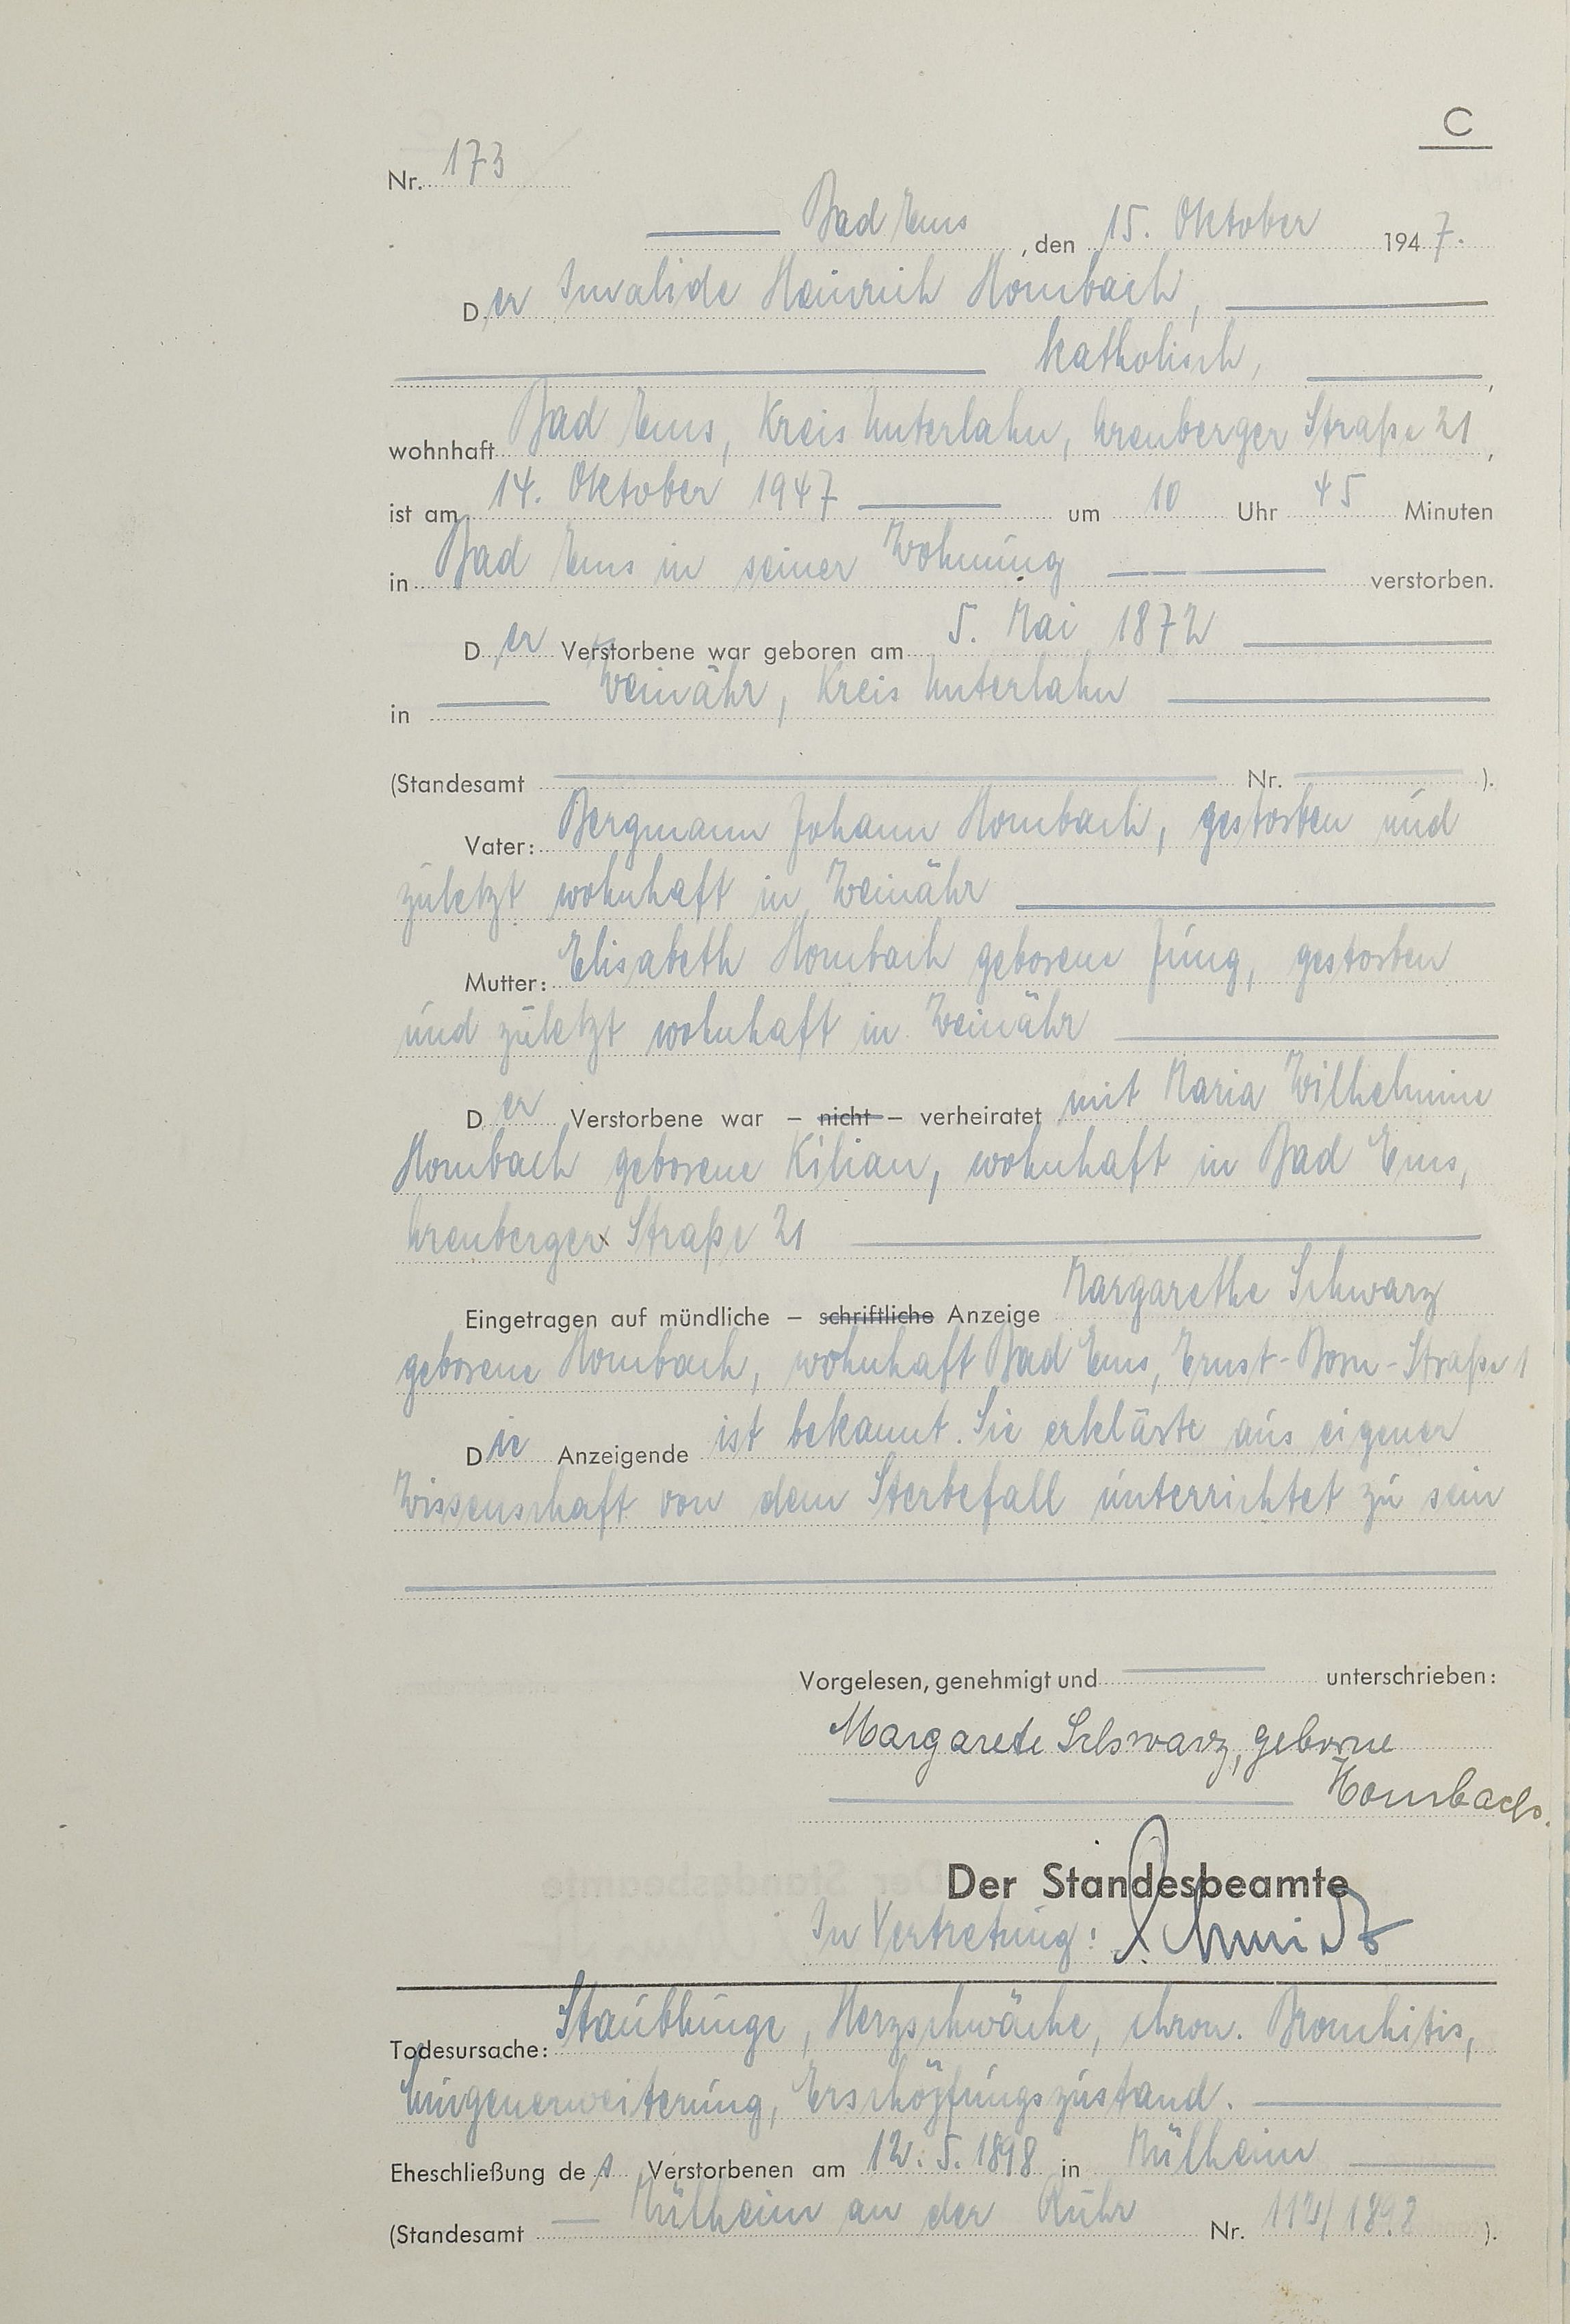 C
Nr. 173
Bad Ems, den 15. Oktober 1947.
Der Invalide Heinrich Hombach,
katholisch, ,
wohnhaft Bad Ems, Kreis Unterlahn, Arenberger Straße 21,
ist am 14. Oktober 1947 um 10 Uhr 45 Minuten
in Bad Ems in seiner Wohnung verstorben.
Der Verstorbene war geboren am 5. Mai 1872
in Weinähr, Kreis Unterlahn
(Standesamt Nr. ).
Vater: Bergmann Johann Hombach, gestorben und
zuletzt wohnhaft in Weinähr
Mutter: Elisabeth Hombach geborene Jung, gestorben
und zuletzt wohnhaft in Weinähr
Der Verstorbene war – nicht – verheiratet mit Maria Wilhelmine
Hombach geborene Kilian, wohnhaft in Bad Ems,
Arenberger Straße 21
Eingetragen auf mündliche – schriftliche Anzeige Margarethe Schwarz
geborene Hombach, wohnhaft Bad Ems, Ernst-Born-Straße 1
Die Anzeigende ist bekannt. Sie erklärte aus eigener
Wissenschaft von dem Sterbefall unterrichtet zu sein
Vorgelesen, genehmigt und unterschrieben:
Margarete Schwarz, geborne
Hombach.
Der Standesbeamte
In Vertretung: Schmidt
Todesursache: Staublunge, Herzschwäche, chron. Bronchitis,
Lungenerweiterung, Erschöpfungszustand.
Eheschließung des Verstorbenen am 12. 5. 1898 in Mülheim
(Standesamt Mülheim an der Ruhr Nr. 112/1898 ).